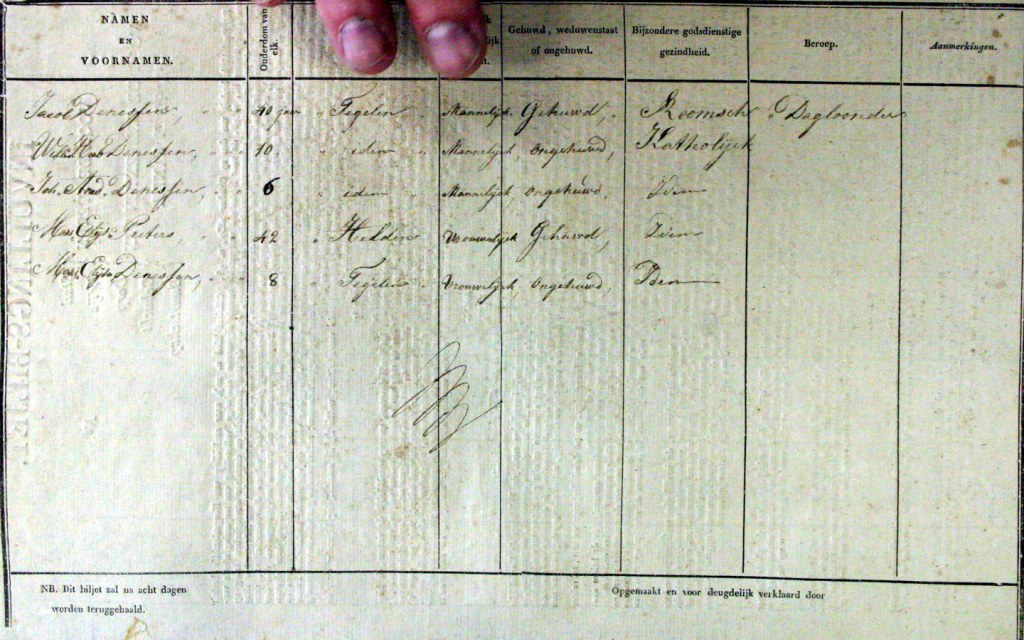 NAMEN EN VOORNAMEN. Ouderdom van elk. Gehuwd, weduwenstaat of ongehuwd. Bijzondere godsdienstige gezindheid. Beroep. Aanmerkingen.
Jacob Denessen, 40 jaar Tegelen Mannelijk, Gehuwd, Roomsch Dagloonder
Denessen, 10 idem Mannelijk, ongehuwd, Katholijk
Joh. Denessen, 6 idem Mannelijk, ongehuwd, Idem
Mar. Pieters, 42 Helden Vrouwelijk, Gehuwd, Idem
Mar. Denessen, 8 Tegelen Vrouwelijk, ongehuwd, Idem
NB. Dit biljet zal na acht dagen
worden teruggehaald.
Opgemaakt en voor deugdelijk verklaard door